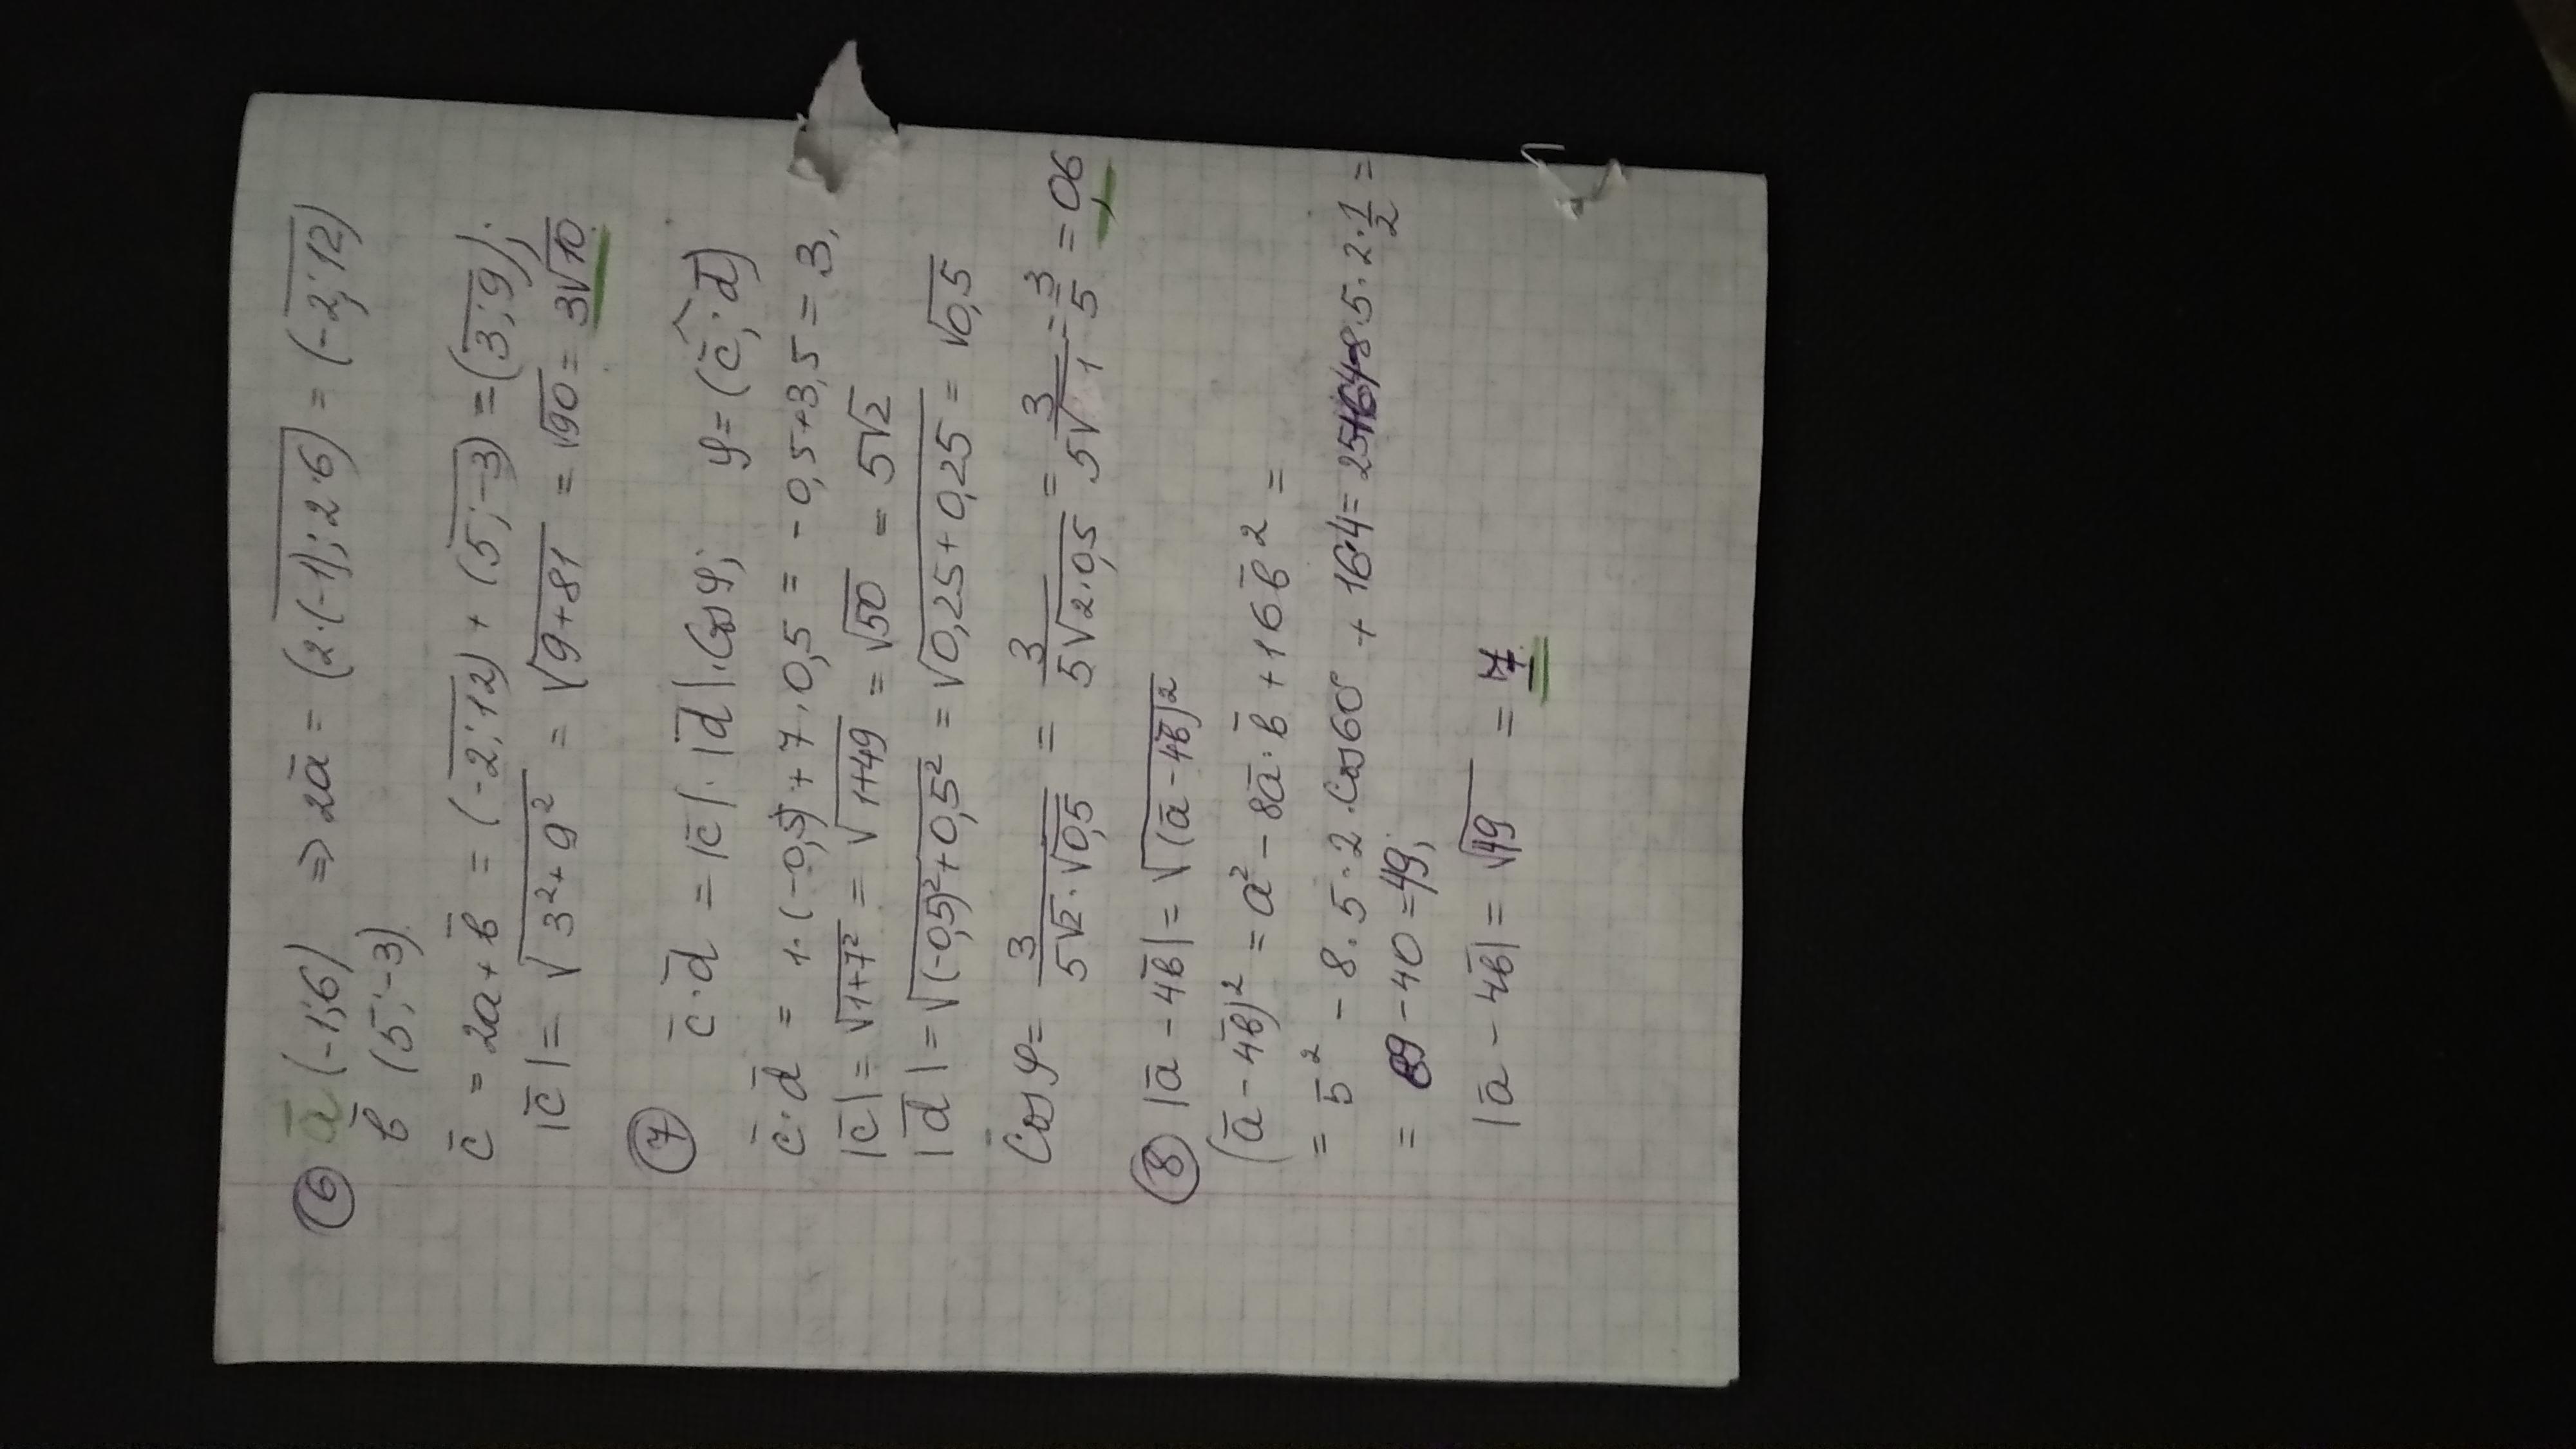 ⑥ a̅ (-1;6) ⇒ 2a̅ = (2·(-1); 2·6) = (-2; 12)
b̅ (5; -3)
c̅ = 2a + b̅ = (-2; 12) + (5; -3) = (3; 9);
|c̅| = √(3² + 9²) = √(9+81) = √90 = 3√10
⑦ c̅·d̅ = |c̅|·|d̅|·Cos φ; φ = (c̅; d̅)
c̅·d̅ = 1·(-0,5) + 7·0,5 = -0,5+3,5 = 3,
|c̅| = √(1+7²) = √(1+49) = √50 = 5√2
|d̅| = √((-0,5)²+0,5²) = √(0,25+0,25) = √0,5
Cos φ = 3/(5√2·√0,5) = 3/(5√(2·0,5)) = 3/(5√1) = 3/5 = 0,6
⑧ |a̅ - 4b̅| = √(a̅ - 4b̅)²
(a̅ - 4b̅)² = a̅² - 8a̅·b̅ + 16b̅² =
= 5² - 8·5·2·Cos 60° + 16·4 = 25+64-8·5·2·1/2 =
= 89 - 40 = 49;
|a̅ - 4b̅| = √49 = 7